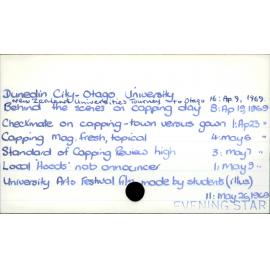 Dunedin City - Otago University
New Zealand Universities Tourney to Otago 16: Ap 9, 1969
Behind the scenes on capping day 8: Ap 19, 1969
Checkmate on capping - town versus gown 1: Ap 23 "
Capping Mag. fresh, topical 4: May 6 "
Standard of Capping Review high 3: May 7 "
Local 'Hoods' nab announcer 1: May 9 "
University Arts Festival film made by students (illus)
11: May 26, 1969
EVENING STAR